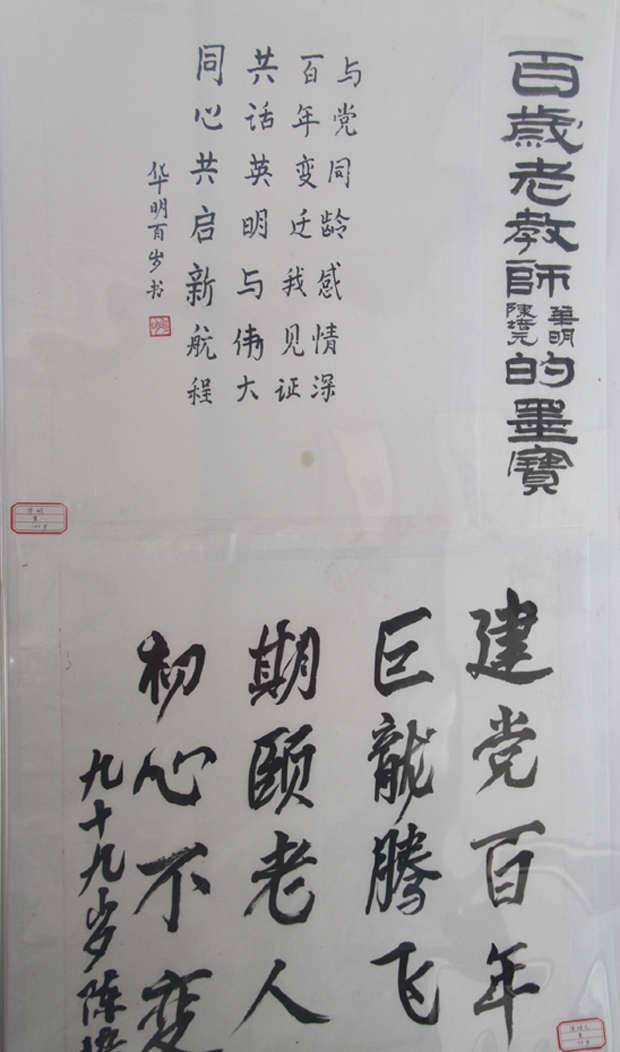 百歲老教師
華明
陳培元
的墨寶
与党同龄感情深
百年变迁我见证
共话英明与伟大
同心共启新航程
华明百岁书
建党百年
巨龍腾飞
期颐老人
初心不变
九十九岁陈培